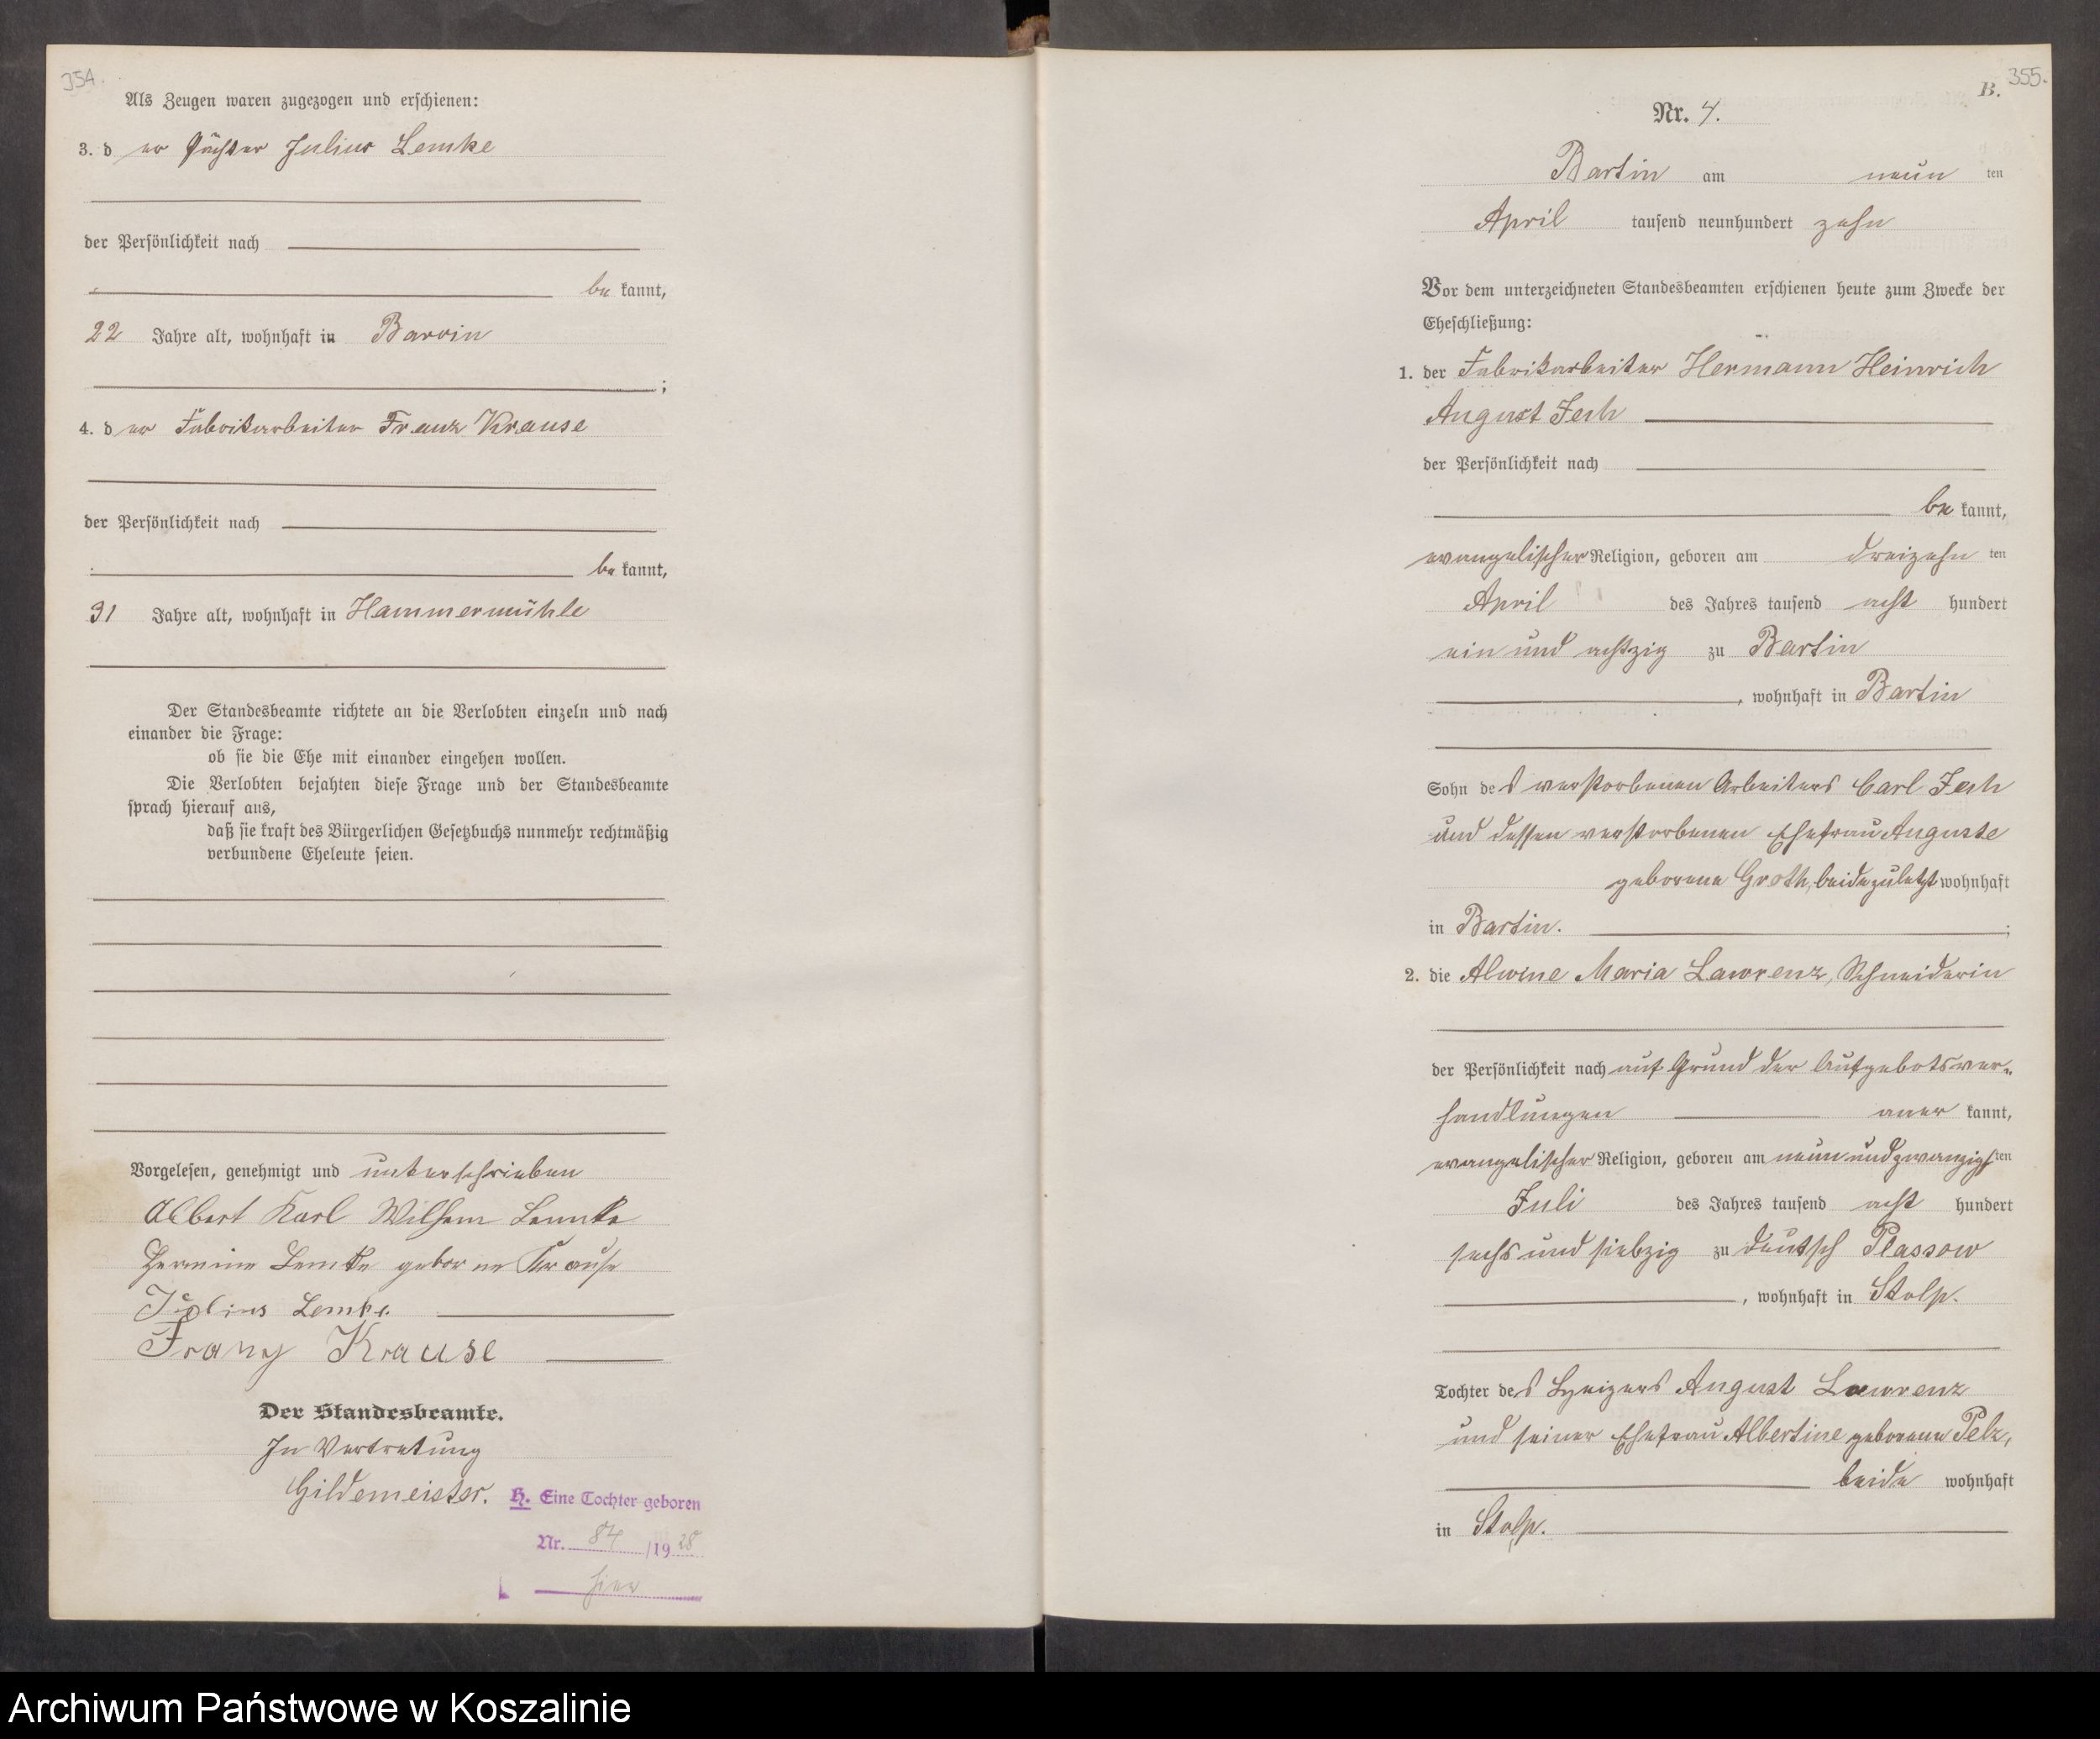 354.
Als Zeugen waren zugezogen und erschienen:
3. der Pächter Julius Lemke
der Persönlichkeit nach
bekannt,
22 Jahre alt, wohnhaft in Barvin
;
4. der Fabrikarbeiter Franz Krause
der Persönlichkeit nach
bekannt,
31 Jahre alt, wohnhaft in Hammermühle
Der Standesbeamte richtete an die Verlobten einzeln und nach
einander die Frage:
ob sie die Ehe mit einander eingehen wollen.
Die Verlobten bejahten diese Frage und der Standesbeamte
sprach hierauf aus,
daß sie kraft des Bürgerlichen Gesetzbuchs nunmehr rechtmäßig
verbundene Eheleute seien.
Vorgelesen, genehmigt und unterschrieben
Albert Karl Wilhem Lemke
Hermine Lemke geborne Krause
Julius Lemke.
Franz Krause
Der Standesbeamte.
In Vertretung
Gildemeister.
H. Eine Tochter geboren
Nr. 84 /1928
hier
355.
B.
Nr. 4.
Bartin am neunten
April tausend neunhundert zehn
Vor dem unterzeichneten Standesbeamten erschienen heute zum Zwecke der
Eheschließung:
1. der Fabrikarbeiter Hermann Heinrich
August Jesch
der Persönlichkeit nach
bekannt,
evangelischer Religion, geboren am dreizehnten
April des Jahres tausend achthundert
ein und achtzig zu Bartin
, wohnhaft in Bartin
Sohn des verstorbenen Arbeiters Carl Jesch
und dessen verstorbenen Ehefrau Auguste
geborene Groth, beide zuletzt wohnhaft
in Bartin. ;
2. die Alwine Maria Lawrenz, Schneiderin
der Persönlichkeit nach auf Grund der Aufgebotsver-
handlungen anerkannt,
evangelischer Religion, geboren am neunundzwanzigsten
Juli des Jahres tausend achthundert
sechs und siebzig zu Deutsch Plassow
, wohnhaft in Stolp.
Tochter des Heizers August Lawrenz
und seiner Ehefrau Albertine geborene Pelz,
beide wohnhaft
in Stolp.
Archiwum Państwowe w Koszalinie